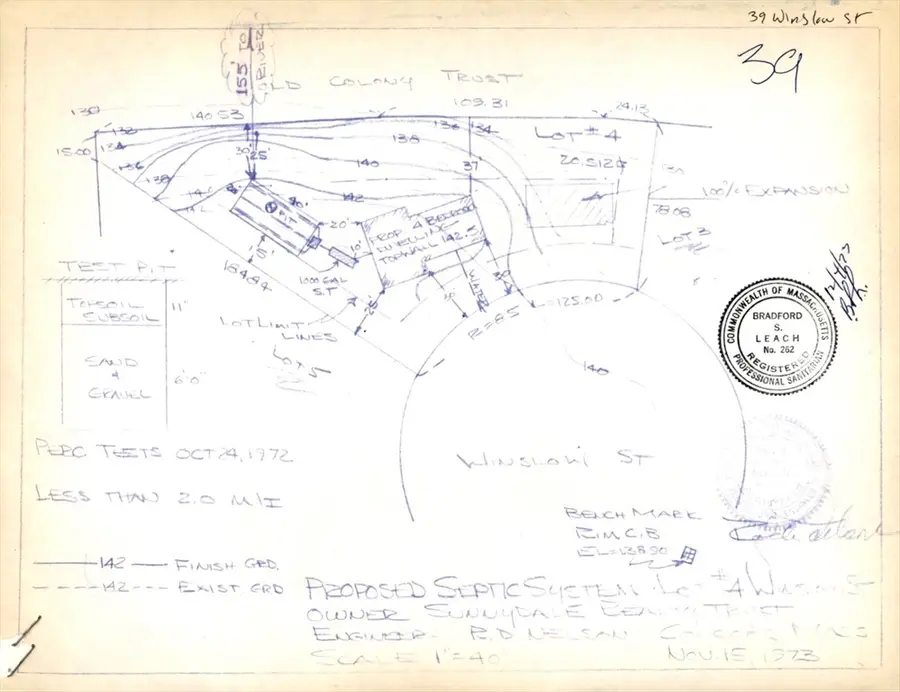 39 Winslow St
39
155' TO RIVER
OLD COLONY TRUST
109.31
24.13
130
140.53
132
132
134
LOT #4
15.00
134
138
20,512
136
30'
25'
140
37'
138
142
100% EXPANSION
142
40'
PIT
20'
PROP. 4 BEDROOM
DWELLING
TOPWALL 142.5
78.08
LOT 3
15'
10'
164.84
1000 GAL
S.T.
WATER
30'
L=125.00
R=85
LOT LIMIT
LINES
LOT 5
140
TEST PIT
TOPSOIL
SUBSOIL
11"
SAND
&
GRAVEL
6'0"
COMMONWEALTH OF MASSACHUSETTS
BRADFORD
S.
LEACH
No. 262
REGISTERED
PROFESSIONAL SANITARIAN
PERC TESTS OCT 24, 1972
LESS THAN 2.0 M/I
WINSLOW ST
BENCH MARK
RIM C.B
EL=138.90
142 FINISH GRD.
142 EXIST GRD
PROPOSED SEPTIC SYSTEM LOT #4 WINSLOW ST
OWNER SUNNYDALE REALTY TRUST
ENGINEER- R.D NELSON CONCORD, MASS
SCALE 1"=40' NOV. 15, 1973